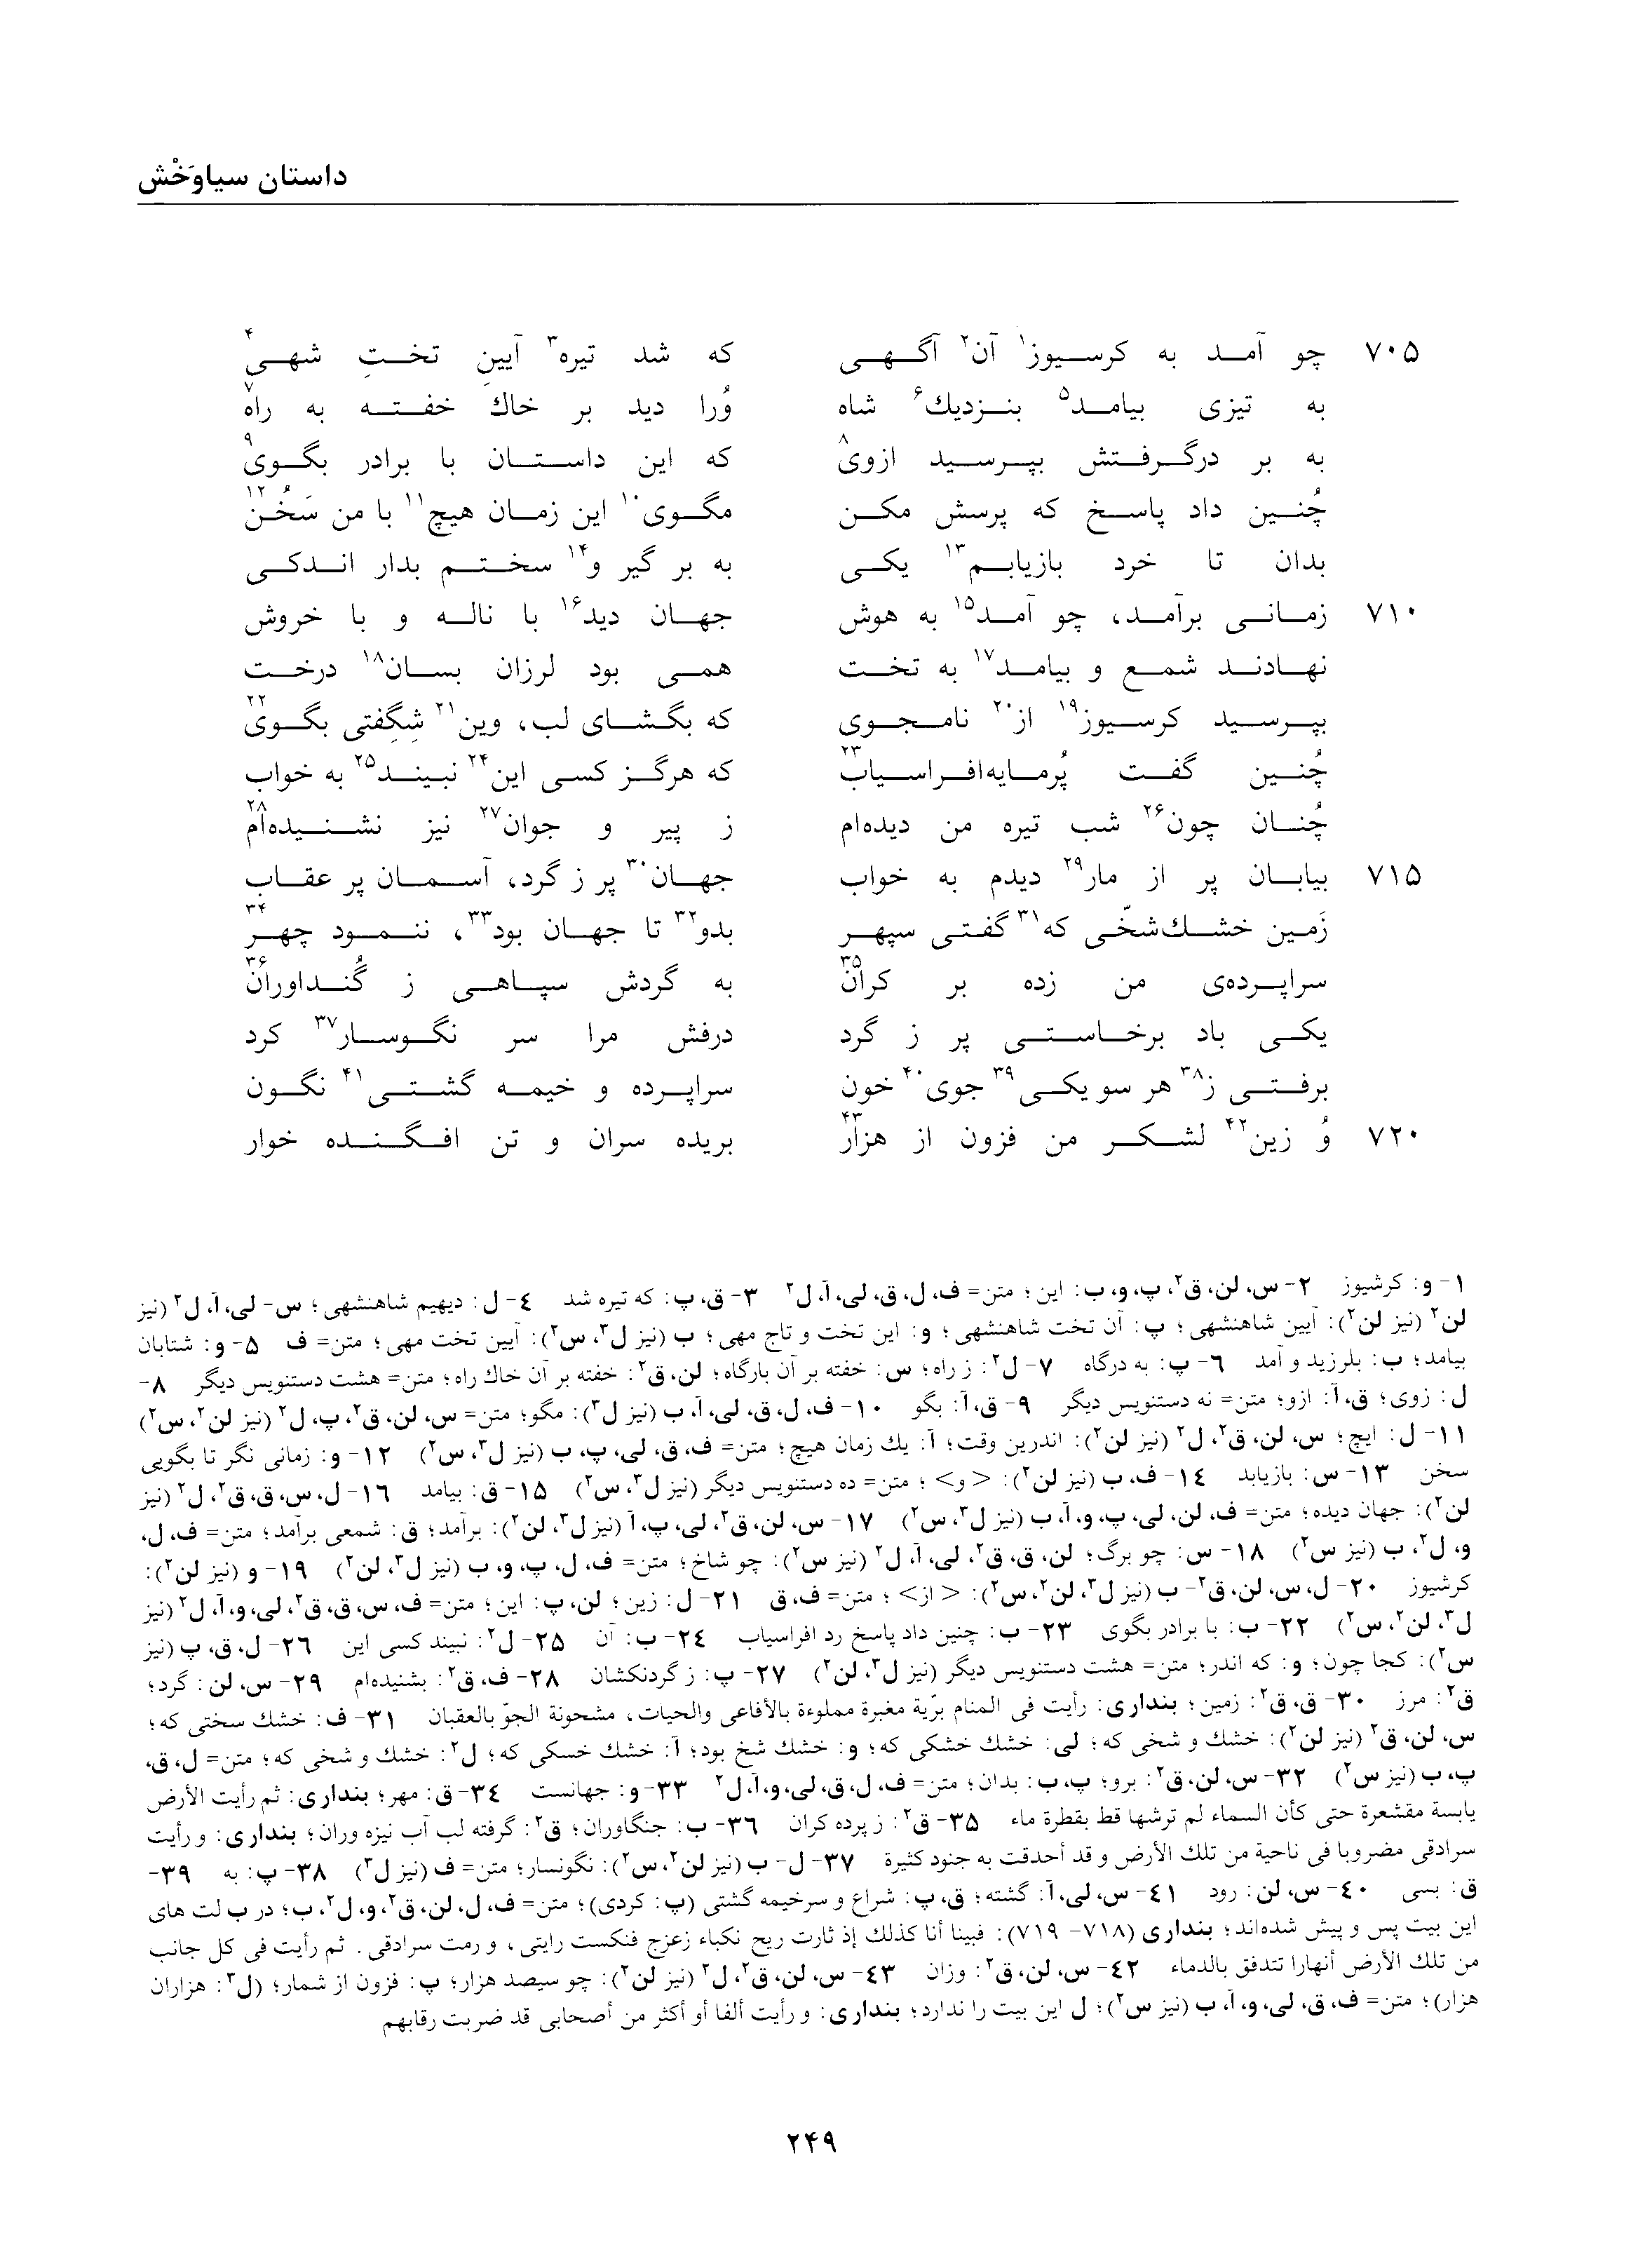 داستان سیاوَخْش
۷۰۵ چو آمد به کرسیوز۱ آن۲ آگهی که شد تیره۳ آیینِ تختِ شهی۴
به تیزی بیامد۵ بنزدیك۶ شاه وُرا دید بر خاك خفته به راه۷
به بر درگرفتش بپرسید ازوی۸ که این داستان با برادر بگوی۹
چُنین داد پاسخ که پرسش مکن مگوی۱۰ این زمان هیچ۱۱ با من سَخُن۱۲
بدان تا خرد بازیابم۱۳ یکی به بر گیر و۱۴ سختم بدار اندکی
۷۱۰ زمانی برآمد، چو آمد۱۵ به هوش جهان دید۱۶ با ناله و با خروش
نهادند شمع و بیامد۱۷ به تخت همی بود لرزان بسان۱۸ درخت
بپرسید کرسیوز۱۹ از۲۰ نامجوی که بگشای لب، وین۲۱ شِگِفتی بگوی۲۲
چُنین گفت پُرمایه‌افراسیاب۲۳ که هرگز کسی این۲۴ نبیند۲۵ به خواب
چُنان چون۲۶ شب تیره من دیده‌ام ز پیر و جوان۲۷ نیز نشنیده‌ام۲۸
۷۱۵ بیابان پر از مار۲۹ دیدم به خواب جهان۳۰ پر ز گرد، آسمان پر عقاب
زَمین خشك‌شخّی که۳۱ گفتی سپهر بدو۳۲ تا جهان بود۳۳، ننمود چهر۳۴
سراپرده‌ی من زده بر کران۳۵ به گردش سپاهی ز گُنداوران۳۶
یکی باد برخاستی پر ز گرد درفش مرا سر نگوسار۳۷ کرد
برفتی ز۳۸ هر سو یکی۳۹ جوی۴۰ خون سراپرده و خیمه گشتی۴۱ نگون
۷۲۰ وُ زین۴۲ لشکر من فزون از هزار۴۳ بریده سران و تن افگنده خوار
۱- و: کرشیوز ۲- س، لن، ق۲، پ، و، ب: این؛ متن= ف، ل، ق، لی، آ، ل۲ ۳- ق، پ: که تیره شد ٤- ل: دیهیم شاهنشهی؛ س- لی، آ، ل۲ (نیز
لن۲ (نیز لن۲): آیین شاهنشهی؛ پ: آن تخت شاهنشهی؛ و: این تخت و تاج مهی؛ ب (نیز ل۳، س۲): آیین تخت مهی؛ متن= ف ۵- و: شتابان
بیامد؛ ب: بلرزید و آمد ٦- پ: به درگاه ۷- ل۲: ز راه؛ س: خفته بر آن بارگاه؛ لن، ق۲: خفته بر آن خاك راه؛ متن= هشت دستنویس دیگر ۸-
ل: زوی؛ ق، آ: ازو؛ متن= نه دستنویس دیگر ۹- ق، آ: بگو ۱۰- ف، ل، ق، لی، آ، ب (نیز ل۳): مگو؛ متن= س، لن، ق۲، پ، ل۲ (نیز لن۲، س۲)
۱۱- ل: ایچ؛ س، لن، ق۲، ل۲ (نیز لن۲): اندرین وقت؛ آ: یك زمان هیچ؛ متن= ف، ق، لی، پ، ب (نیز ل۳، س۲) ۱۲- و: زمانی نگر تا بگویی
سخن ۱۳- س: بازیابد ۱٤- ف، ب (نیز لن۲): <و>؛ متن= ده دستنویس دیگر (نیز ل۳، س۲) ۱۵- ق: بیامد ۱٦- ل، س، ق، ق۲، ل۲ (نیز
لن۲): جهان دیده؛ متن= ف، لن، لی، پ، و، آ، ب (نیز ل۳، س۲) ۱۷- س، لن، ق۲، لی، پ، آ (نیز ل۳، لن۲): برآمد؛ ق: شمعی برآمد؛ متن= ف، ل،
و، ل۲، ب (نیز س۲) ۱۸- س: چو برگ؛ لن، ق، ق۲، لی، آ، ل۲ (نیز س۲): چو شاخ؛ متن= ف، ل، پ، و، ب (نیز ل۳، لن۲) ۱۹- و (نیز لن۲):
کرشیوز ۲۰- ل، س، لن، ق۲- ب (نیز ل۳، لن۲، س۲): <از>؛ متن= ف، ق ۲۱- ل: زین؛ لن، پ: این؛ متن= ف، س، ق، ق۲، لی، و، آ، ل۲ (نیز
ل۳، لن۲، س۲) ۲۲- ب: با برادر بگوی ۲۳- ب: چنین داد پاسخ رد افراسیاب ۲٤- ب: آن ۲۵- ل۲: نبیند کسی این ۲٦- ل، ق، پ (نیز
س۲): کجا چون؛ و: که اندر؛ متن= هشت دستنویس دیگر (نیز ل۳، لن۲) ۲۷- پ: ز گردنکشان ۲۸- ف، ق۲: بشنیده‌ام ۲۹- س، لن: گرد؛
ق۲: مرز ۳۰- ق، ق۲: زمین؛ بنداری: رأیت فی المنام برّیة مغبرة مملوءة بالأفاعی والحیات، مشحونة الجوّ بالعقبان ۳۱- ف: خشك سختی که؛
س، لن، ق۲ (نیز لن۲): خشك و شخی که؛ لی: خشك خشکی که؛ و: خشك شخ بود؛ آ: خشك خسکی که؛ ل۲: خشك و شخی که؛ متن= ل، ق،
پ، ب (نیز س۲) ۳۲- س، لن، ق۲: برو؛ پ، ب: بدان؛ متن= ف، ل، ق، لی، و، آ، ل۲ ۳۳- و: جهانست ۳٤- ق: مهر؛ بنداری: ثم رأیت الأرض
یابسة مقشعرة حتی کأن السماء لم ترشها قط بقطرة ماء ۳۵- ق۲: ز پرده کران ۳٦- ب: جنگاوران؛ ق۲: گرفته لب آب نیزه وران؛ بنداری: و رأیت
سرادقی مضروبا فی ناحیة من تلك الأرض و قد أحدقت به جنود کثیرة ۳۷- ل- ب (نیز لن۲، س۲): نگونسار؛ متن= ف (نیز ل۳) ۳۸- پ: به ۳۹-
ق: بسی ٤۰- س، لن: رود ٤۱- س، لی، آ: گشته؛ ق، پ: شراع و سرخیمه گشتی (پ: کردی)؛ متن= ف، ل، لن، ق۲، و، ل۲، ب؛ در ب لت های
این بیت پس و پیش شده‌اند؛ بنداری (۷۱۸- ۷۱۹): فبینا أنا کذلك إذ ثارت ریح نکباء زعزج فنکست رایتی، و رمت سرادقی. ثم رأیت فی کل جانب
من تلك الأرض أنهارا تتدفق بالدماء ٤۲- س، لن، ق۲: وزان ٤۳- س، لن، ق۲، ل۲ (نیز لن۲): چو سیصد هزار؛ پ: فزون از شمار؛ (ل۳: هزاران
هزار)؛ متن= ف، ق، لی، و، آ، ب (نیز س۲)؛ ل این بیت را ندارد؛ بنداری: و رأیت ألفا أو أکثر من أصحابی قد ضربت رقابهم
۲۴۹